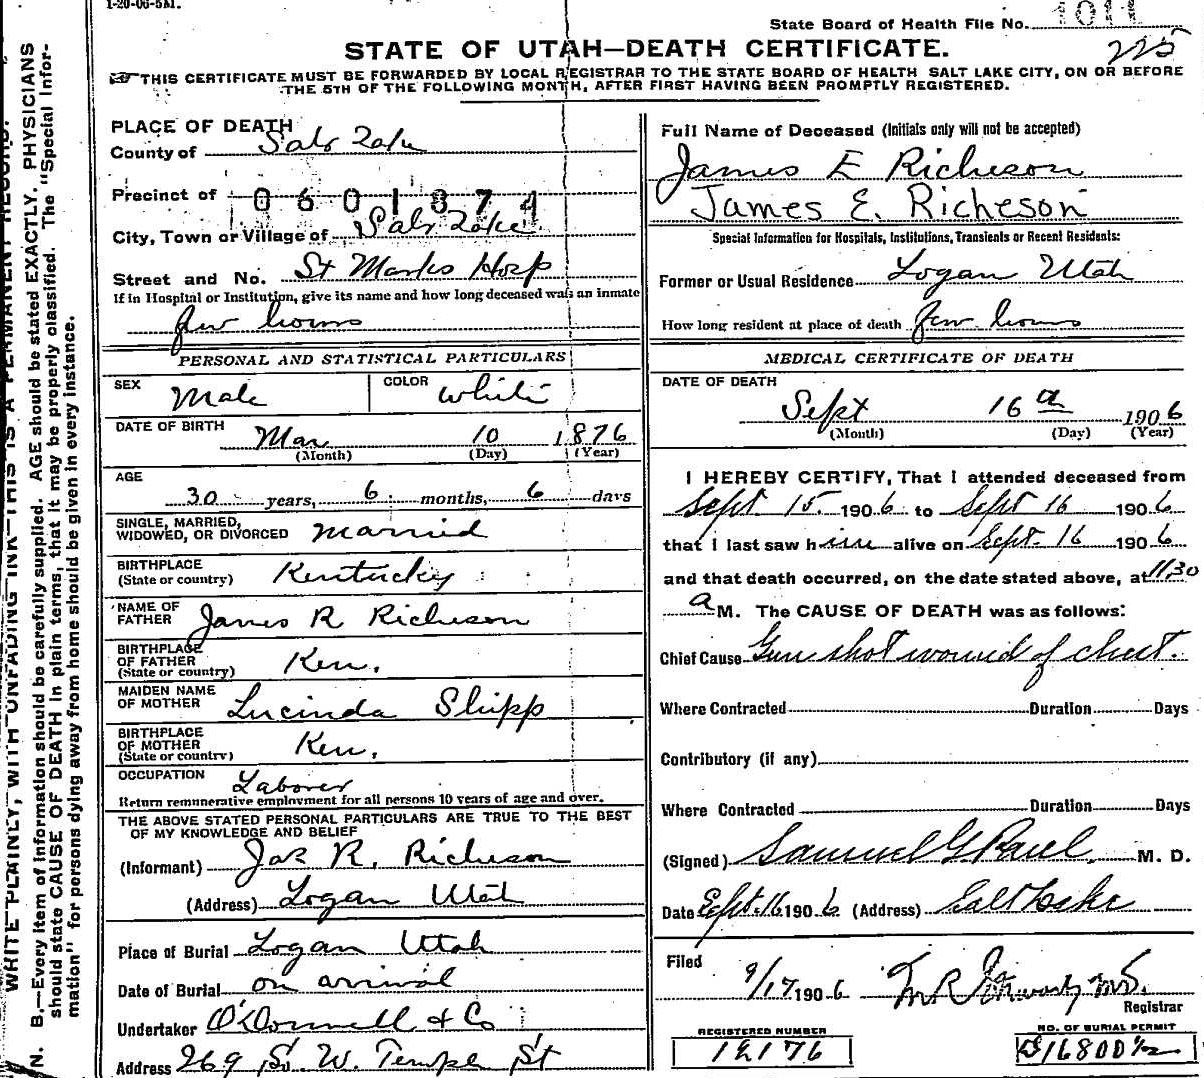 1-20-06-5M.
State Board of Health File No. 1011
225
STATE OF UTAH—DEATH CERTIFICATE.
THIS CERTIFICATE MUST BE FORWARDED BY LOCAL REGISTRAR TO THE STATE BOARD OF HEALTH SALT LAKE CITY, ON OR BEFORE
THE 5TH OF THE FOLLOWING MONTH, AFTER FIRST HAVING BEEN PROMPTLY REGISTERED.
WRITE PLAINLY, WITH UNFADING INK—THIS IS A PERMANENT RECORD.
N. B.—Every item of information should be carefully supplied. AGE should be stated EXACTLY. PHYSICIANS
should state CAUSE OF DEATH in plain terms, that it may be properly classified. The "Special Infor-
mation" for persons dying away from home should be given in every instance.
PLACE OF DEATH
County of Salt Lake
Precinct of 0601874
City, Town or Village of Salt Lake
Street and No. St Marks Hosp
If in Hospital or Institution, give its name and how long deceased was an inmate
few hours
PERSONAL AND STATISTICAL PARTICULARS
SEX Male COLOR White
DATE OF BIRTH Mar 10 1876
(Month) (Day) (Year)
AGE
30 years, 6 months, 6 days
SINGLE, MARRIED,
WIDOWED, OR DIVORCED Married
BIRTHPLACE
(State or country) Kentucky
NAME OF
FATHER James R Richeson
BIRTHPLACE
OF FATHER
(State or country) Ken.
MAIDEN NAME
OF MOTHER Lucinda Shipp
BIRTHPLACE
OF MOTHER
(State or country) Ken.
OCCUPATION Laborer
Return remunerative employment for all persons 10 years of age and over.
THE ABOVE STATED PERSONAL PARTICULARS ARE TRUE TO THE BEST
OF MY KNOWLEDGE AND BELIEF
(Informant) Jas R. Richeson
(Address) Logan Utah
Place of Burial Logan Utah
Date of Burial on arrival
Undertaker O'Donnell & Co
Address 269 So. W. Temple St
Full Name of Deceased (Initials only will not be accepted)
James E Richeson
James E. Richeson
Special Information for Hospitals, Institutions, Transients or Recent Residents:
Former or Usual Residence Logan Utah
How long resident at place of death few hours
MEDICAL CERTIFICATE OF DEATH
DATE OF DEATH
Sept 16 a 1906
(Month) (Day) (Year)
I HEREBY CERTIFY, That I attended deceased from
Sept. 15 1906 to Sept 16 1906
that I last saw him alive on Sept. 16 1906
and that death occurred, on the date stated above, at 1130
a M. The CAUSE OF DEATH was as follows:
Chief Cause Gun shot wound of chest.
Where Contracted Duration Days
Contributory (if any)
Where Contracted Duration Days
(Signed) Samuel G Paul M. D.
Date Sept. 16 1906 (Address) Salt Lake
Filed
9/17 1906
Registrar
REGISTERED NUMBER
12176
NO. OF BURIAL PERMIT
D16800½